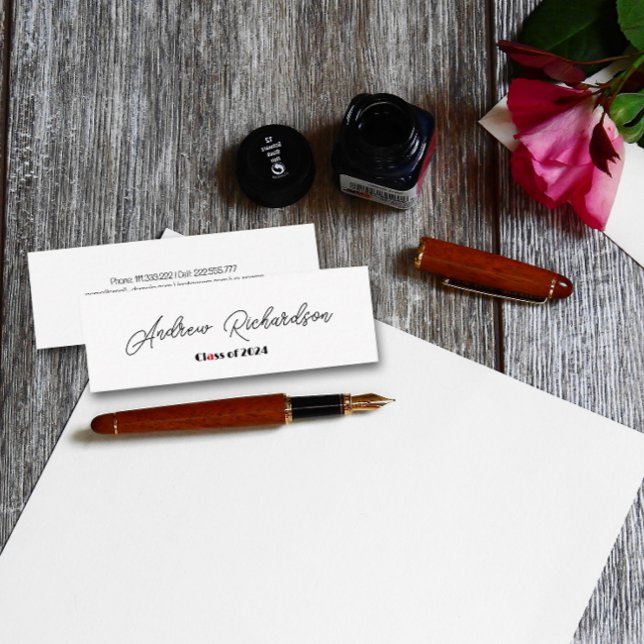 Phone: 111.333.222 | Cell: 222.555.777
Andrew Richardson
Class of 2024